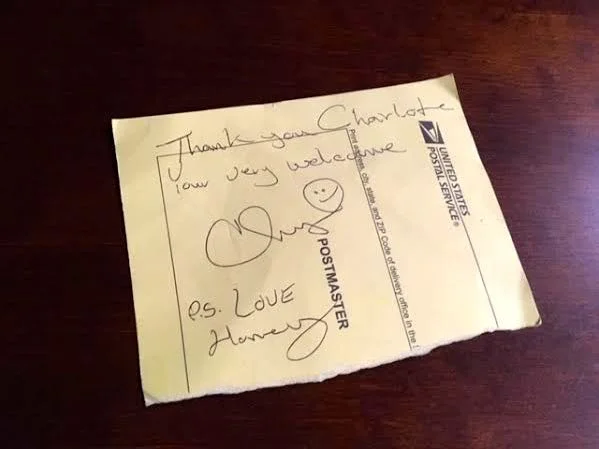 Thank you Charlote
your very welcome
P.S. LOVE
Harvey
POSTMASTER
Print address, city, state, and ZIP Code of delivery office in the
UNITED STATES
POSTAL SERVICE®